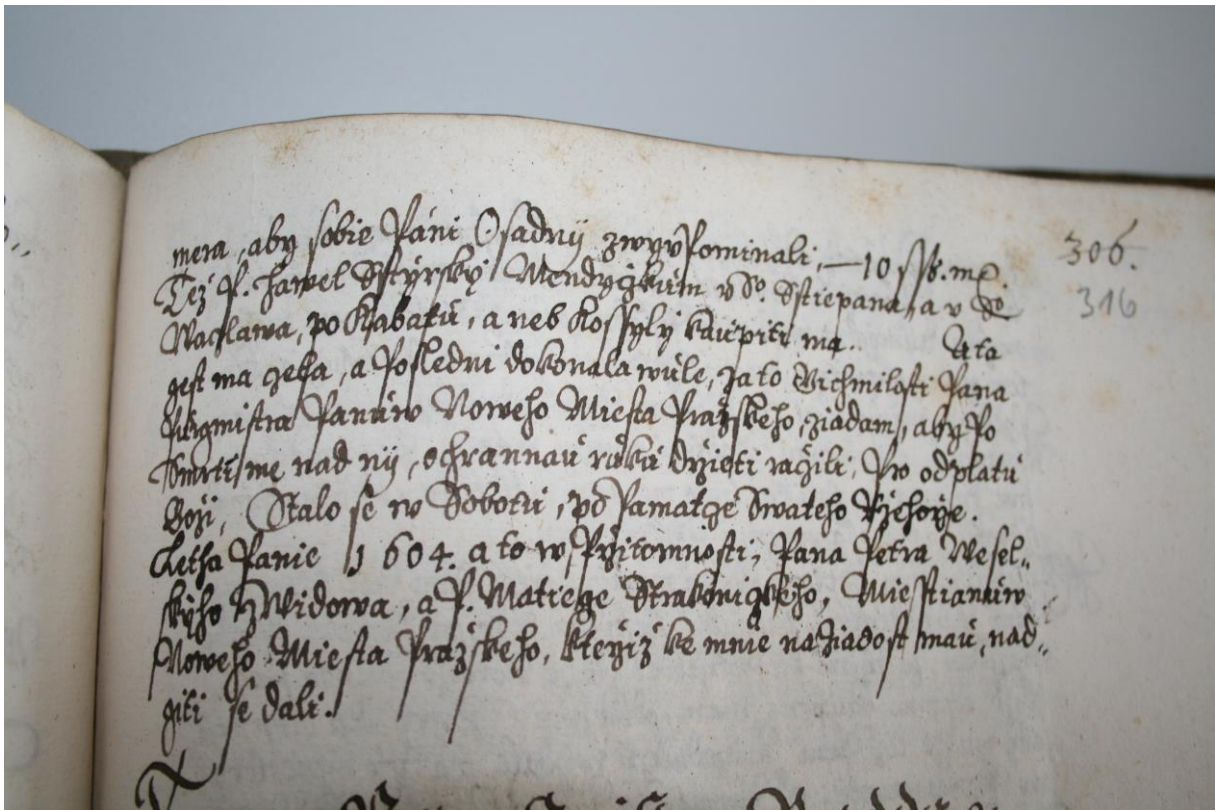 mera, aby sobie Páni Osadnij zwyvpominali, — 10 ssk. m.
306.
Též P. Pawel Sstýrský Mendyczkům v So. Sstiepana, a v So
316
Waczlawa, po Kabatu, a neb Kossyly kaupiti ma. A ta
gest ma czela, a poslední dokonala wůle, za to Vichmilosti Pana
Purgmistra Panuw Noweho Miesta Pražskeho, žiadam, aby po
Smrti me nad nij, ochrannaú ruku držieti ražili, Pro odplatu
Boži, Stalo se w Sobotu, po Pamatcze Swateho
Letha Panie 1604. a to w Přitomnosti, Pana Petra Wesel„
skýho z Widowa, a P. Matiege Strakoniczkeho, Miesstianuw
Noweho Miesta Pražskeho, kteřiž ke mnie na žiadost maú, nad„
giti se dali.